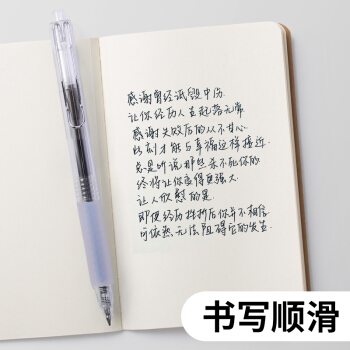 感谢曾经诋毁中伤
让你经历人生起落无常
感谢失败后的从不甘心
此刻才能与幸福这样接近
总是听说那些杀不死你的
终将让你变得更强大
让人欣慰的是
即使经历挫折后你并不相信
可依然无法阻碍它的发生
书写顺滑